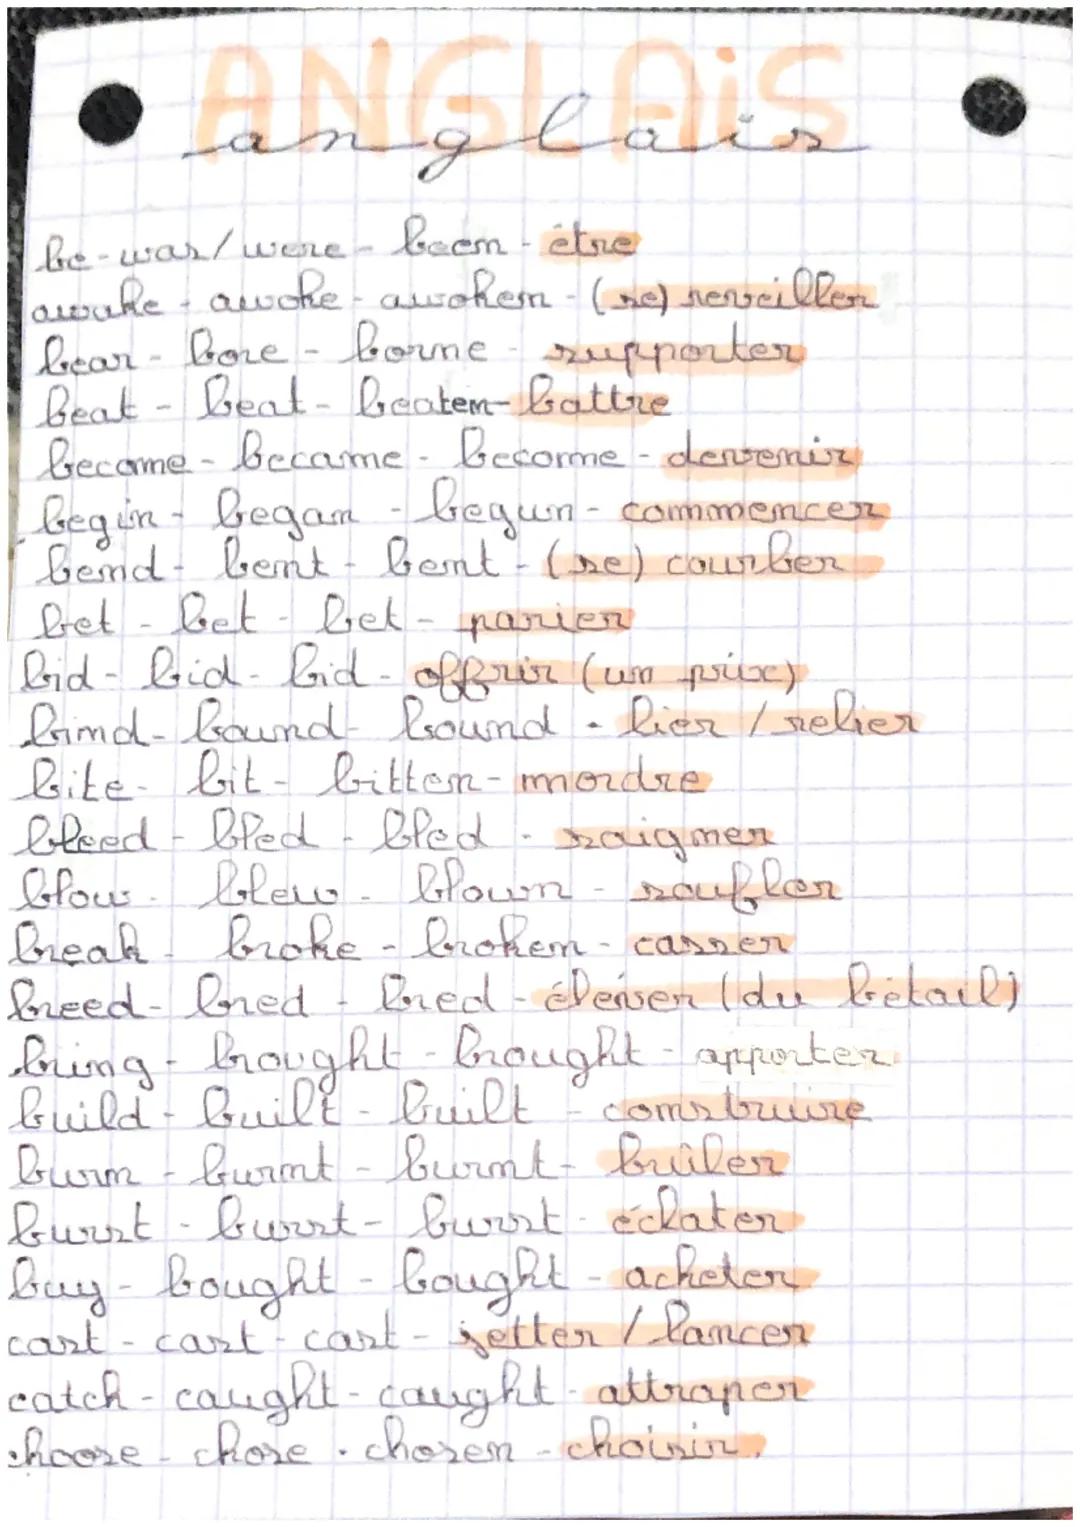 ANGLAiS
anglais
be - was / were - been - être
awake - awoke - awoken - (se) reveiller
bear - bore - borne - supporter
beat - beat - beaten - battre
become - became - become - devenir
begin - began - begun - commencer
bend - bent - bent - (se) courber
bet - bet - bet - parier
bid - bid - bid - offrir (un prix)
bind - bound - bound - lier / relier
bite - bit - bitten - mordre
bleed - bled - bled - saigner
blow - blew - blown - soufler
break - broke - broken - casser
breed - bred - bred - élever (du bétail)
bring - brought - brought - apporter
build - built - built - construire
burn - burnt - burnt - brûler
burst - burst - burst - éclater
buy - bought - bought - acheter
cast - cast - cast - jetter / lancer
catch - caught - caught - attraper
choose - chose - chosen - choisir.